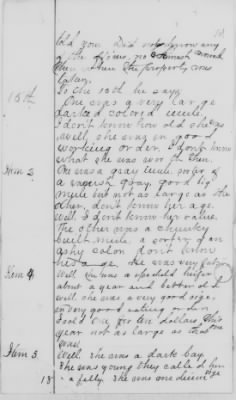 told you. Did not know any
of the officers, no
when the property was
taken.
To the 15th he says
15th
One was a very large
darked colored mule.
I don't know how old she was
Well she was in good
working order. I don't know
what she was worth then.
Item 2
One was a gray mule sorter of
a gray, good big
mule but not as large as the
other, don't know her age.
Well I don't know her value.
The other was a chunky
built mule, a sorter of an
ashy color don't know
her age. She was very fat
Item 4
Well she was a heifer
about a year and better old I
will she was a very good size,
in very good eating order
I sold one for ten dollars this
year not as large as that one
was.
Item 3
Well she was a dark bay.
She was young they called her
a filly. She was one
18